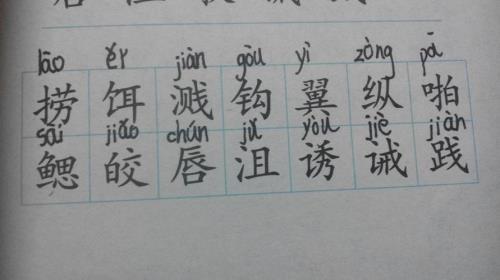 lāo ěr jiàn gōu yì zòng pā
捞饵溅钩翼纵啪
sāi jiǎo chún jǔ yòu jiè jiàn
鳃皎唇沮诱诫践